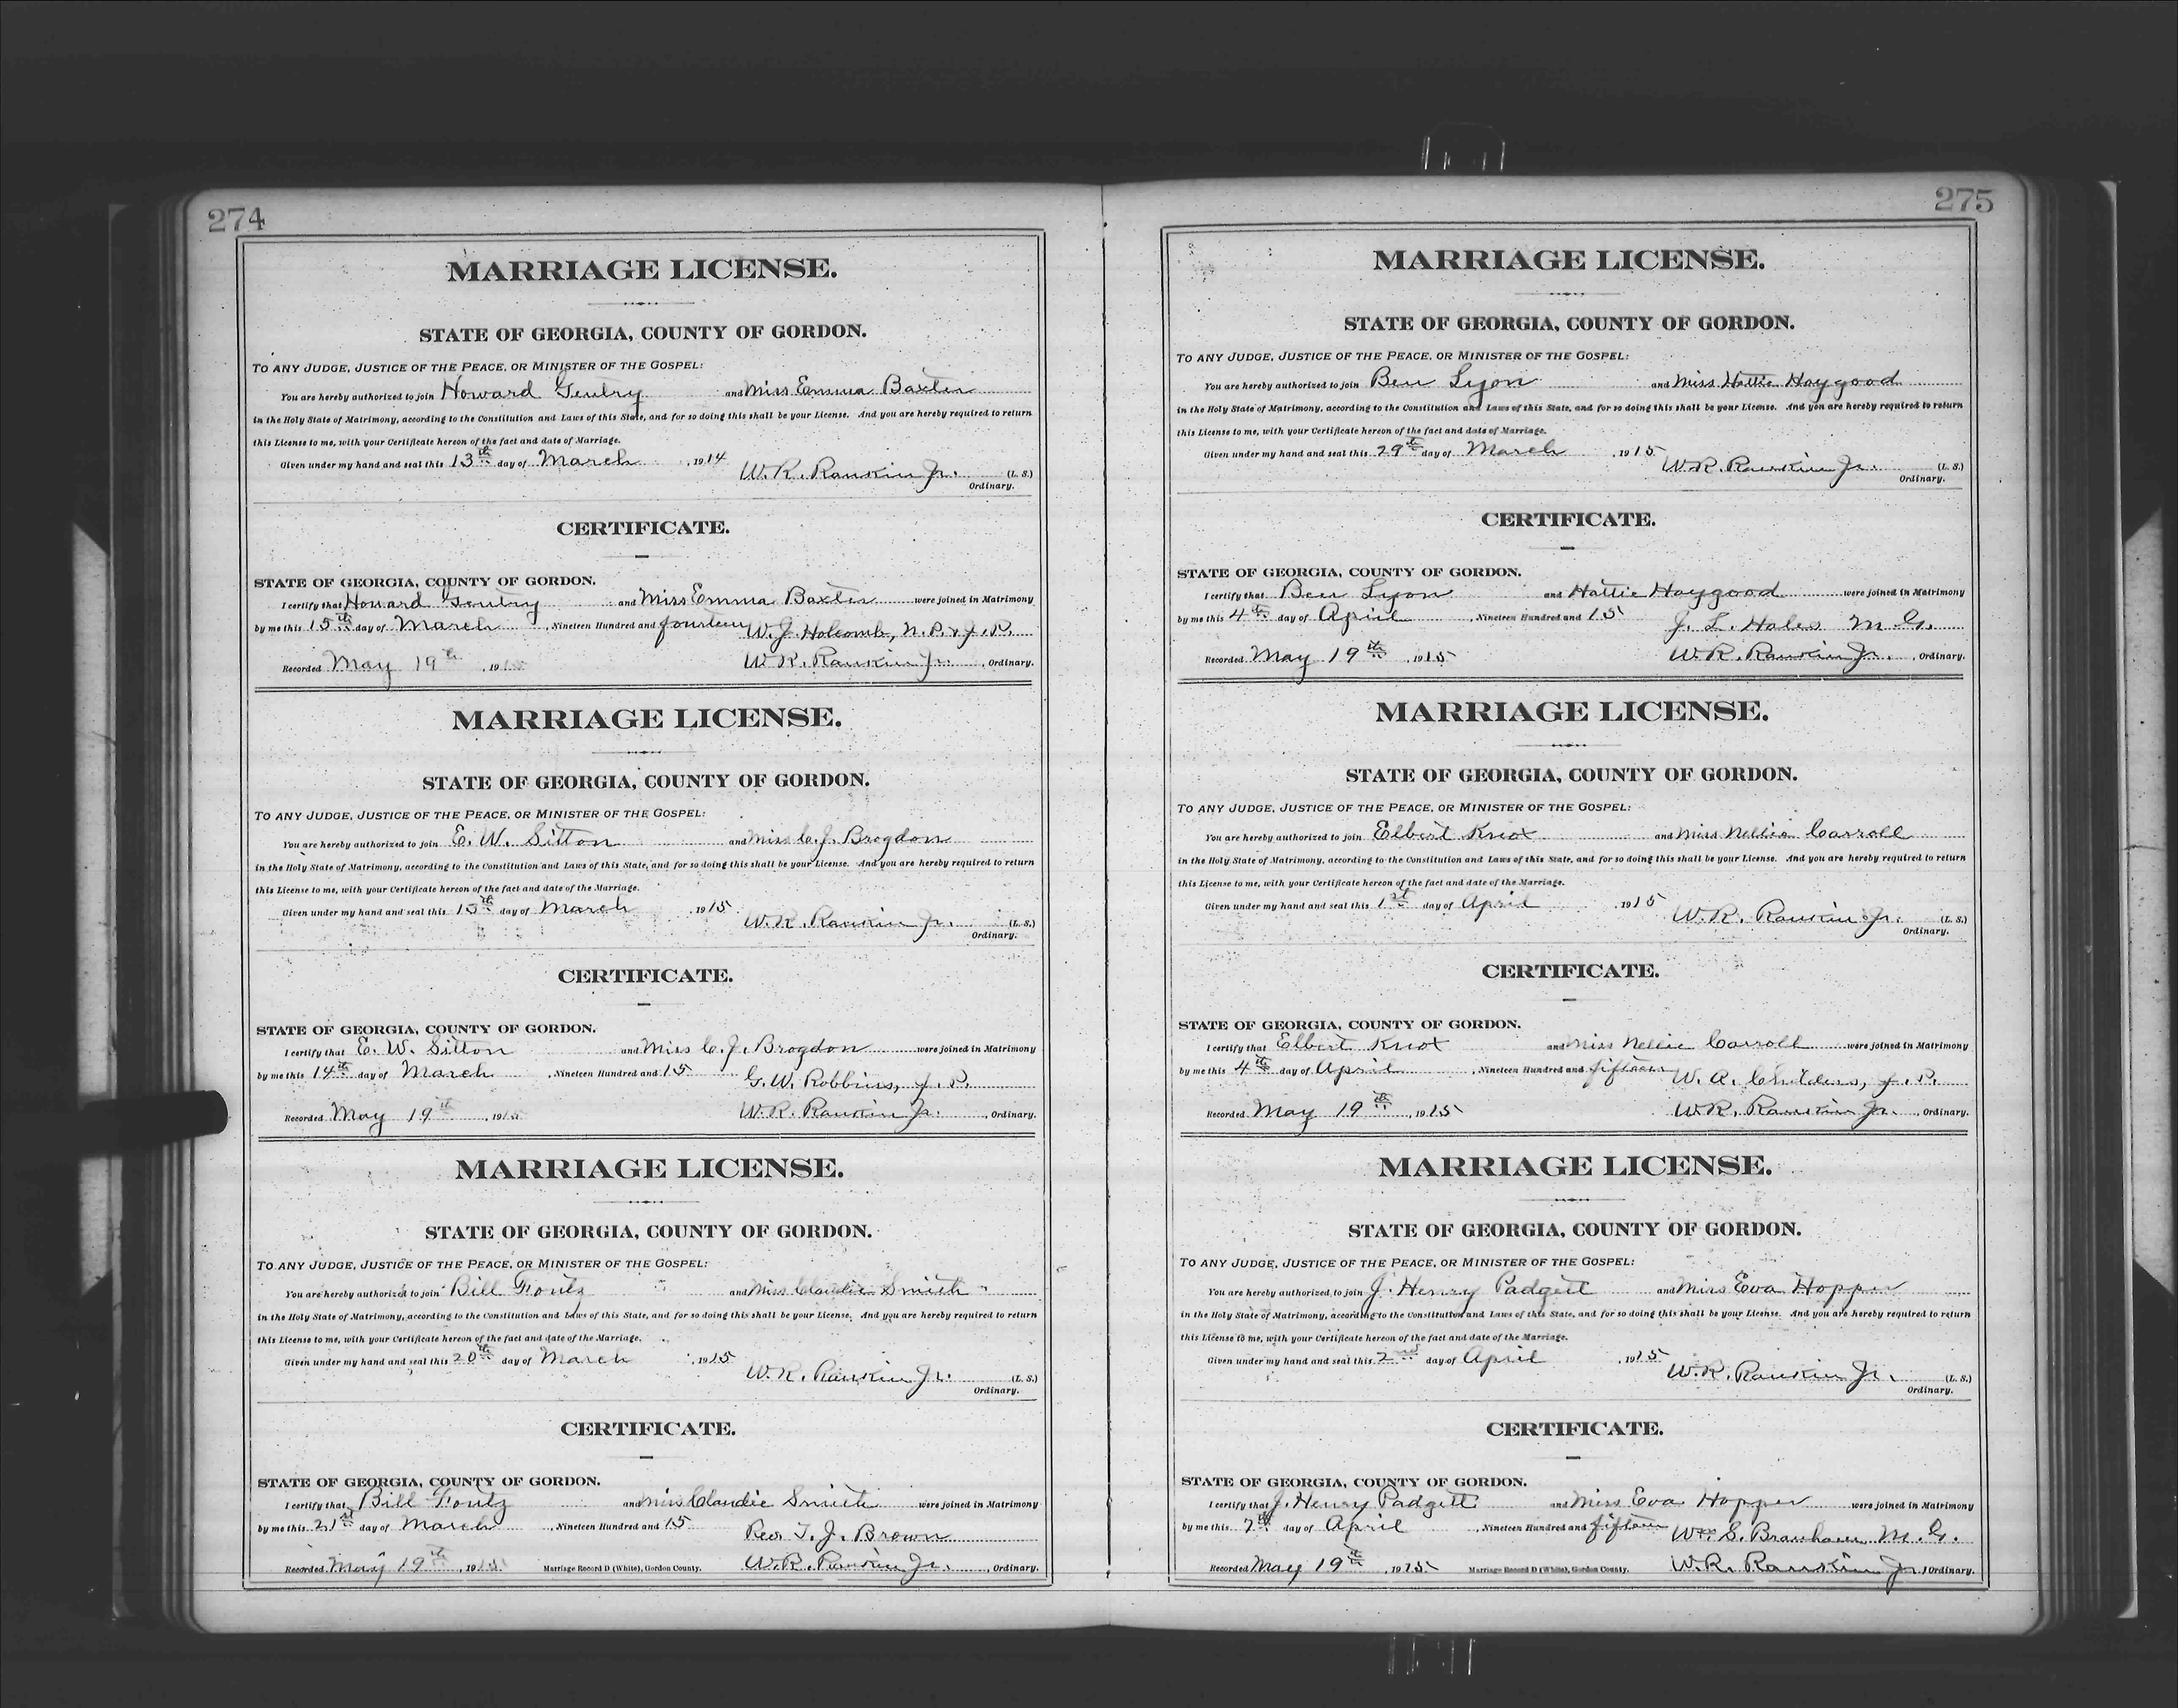 274
MARRIAGE LICENSE.
STATE OF GEORGIA, COUNTY OF GORDON.
TO ANY JUDGE, JUSTICE OF THE PEACE, OR MINISTER OF THE GOSPEL:
You are hereby authorized to join Howard Gentry and Miss Emma Baxter
in the Holy State of Matrimony, according to the Constitution and Laws of this State, and for so doing this shall be your License. And you are hereby required to return
this License to me, with your Certificate hereon of the fact and date of Marriage.
Given under my hand and seal this 13th day of March, 1914
W. R. Rankin Jr. (L. S.)
Ordinary.
CERTIFICATE.
STATE OF GEORGIA, COUNTY OF GORDON.
I certify that Howard Gentry and Miss Emma Baxter were joined in Matrimony
by me this 15th day of March, Nineteen Hundred and fourteen W. J. Holcomb, N. P. & J. P.
Recorded May 19th, 1915 W. R. Rankin Jr., Ordinary.
MARRIAGE LICENSE.
STATE OF GEORGIA, COUNTY OF GORDON.
TO ANY JUDGE, JUSTICE OF THE PEACE, OR MINISTER OF THE GOSPEL:
You are hereby authorized to join E. W. Sitton and Miss C. J. Brogdon
in the Holy State of Matrimony, according to the Constitution and Laws of this State, and for so doing this shall be your License. And you are hereby required to return
this License to me, with your Certificate hereon of the fact and date of the Marriage.
Given under my hand and seal this 13th day of March, 1915
W. R. Rankin Jr. (L. S.)
Ordinary.
CERTIFICATE.
STATE OF GEORGIA, COUNTY OF GORDON.
I certify that E. W. Sitton and Miss C. J. Brogdon were joined in Matrimony
by me this 14th day of March, Nineteen Hundred and 15 G. W. Robbins, J. P.
Recorded May 19th, 1915 W. R. Rankin Jr., Ordinary.
MARRIAGE LICENSE.
STATE OF GEORGIA, COUNTY OF GORDON.
TO ANY JUDGE, JUSTICE OF THE PEACE, OR MINISTER OF THE GOSPEL:
You are hereby authorized to join Bill Foutz and Miss Claudie Smith
in the Holy State of Matrimony, according to the Constitution and Laws of this State, and for so doing this shall be your License. And you are hereby required to return
this License to me, with your Certificate hereon of the fact and date of the Marriage.
Given under my hand and seal this 20th day of March, 1915
W. R. Rankin Jr. (L. S.)
Ordinary.
CERTIFICATE.
STATE OF GEORGIA, COUNTY OF GORDON.
I certify that Bill Foutz and Miss Claudie Smith were joined in Matrimony
by me this 21st day of March, Nineteen Hundred and 15 Rev. T. J. Brown
Recorded May 19th, 1915 Marriage Record D (White), Gordon County. W. R. Rankin Jr., Ordinary.
275
MARRIAGE LICENSE.
STATE OF GEORGIA, COUNTY OF GORDON.
TO ANY JUDGE, JUSTICE OF THE PEACE, OR MINISTER OF THE GOSPEL:
You are hereby authorized to join Ben Lyon and Miss Hattie Haygood
in the Holy State of Matrimony, according to the Constitution and Laws of this State, and for so doing this shall be your License. And you are hereby required to return
this License to me, with your Certificate hereon of the fact and date of Marriage.
Given under my hand and seal this 29th day of March, 1915
W. R. Rankin Jr. (L. S.)
Ordinary.
CERTIFICATE.
STATE OF GEORGIA, COUNTY OF GORDON.
I certify that Ben Lyon and Hattie Haygood were joined in Matrimony
by me this 4th day of April, Nineteen Hundred and 15 J. L. Hales M. G.
Recorded May 19th, 1915 W. R. Rankin Jr., Ordinary.
MARRIAGE LICENSE.
STATE OF GEORGIA, COUNTY OF GORDON.
TO ANY JUDGE, JUSTICE OF THE PEACE, OR MINISTER OF THE GOSPEL:
You are hereby authorized to join Elbert Knox and Miss Nellie Carroll
in the Holy State of Matrimony, according to the Constitution and Laws of this State, and for so doing this shall be your License. And you are hereby required to return
this License to me, with your Certificate hereon of the fact and date of the Marriage.
Given under my hand and seal this 1st day of April, 1915
W. R. Rankin Jr. (L. S.)
Ordinary.
CERTIFICATE.
STATE OF GEORGIA, COUNTY OF GORDON.
I certify that Elbert Knox and Miss Nellie Carroll were joined in Matrimony
by me this 4th day of April, Nineteen Hundred and fifteen W. A. Childers, J. P.
Recorded May 19th, 1915 W. R. Rankin Jr., Ordinary.
MARRIAGE LICENSE.
STATE OF GEORGIA, COUNTY OF GORDON.
TO ANY JUDGE, JUSTICE OF THE PEACE, OR MINISTER OF THE GOSPEL:
You are hereby authorized to join J. Henry Padgett and Miss Eva Hopper
in the Holy State of Matrimony, according to the Constitution and Laws of this State, and for so doing this shall be your License. And you are hereby required to return
this License to me, with your Certificate hereon of the fact and date of the Marriage.
Given under my hand and seal this 2nd day of April, 1915
W. R. Rankin Jr. (L. S.)
Ordinary.
CERTIFICATE.
STATE OF GEORGIA, COUNTY OF GORDON.
I certify that J. Henry Padgett and Miss Eva Hopper were joined in Matrimony
by me this 7th day of April, Nineteen Hundred and fifteen Wm. S. Branham M. G.
Recorded May 19th, 1915 Marriage Record D (White), Gordon County. W. R. Rankin Jr., Ordinary.